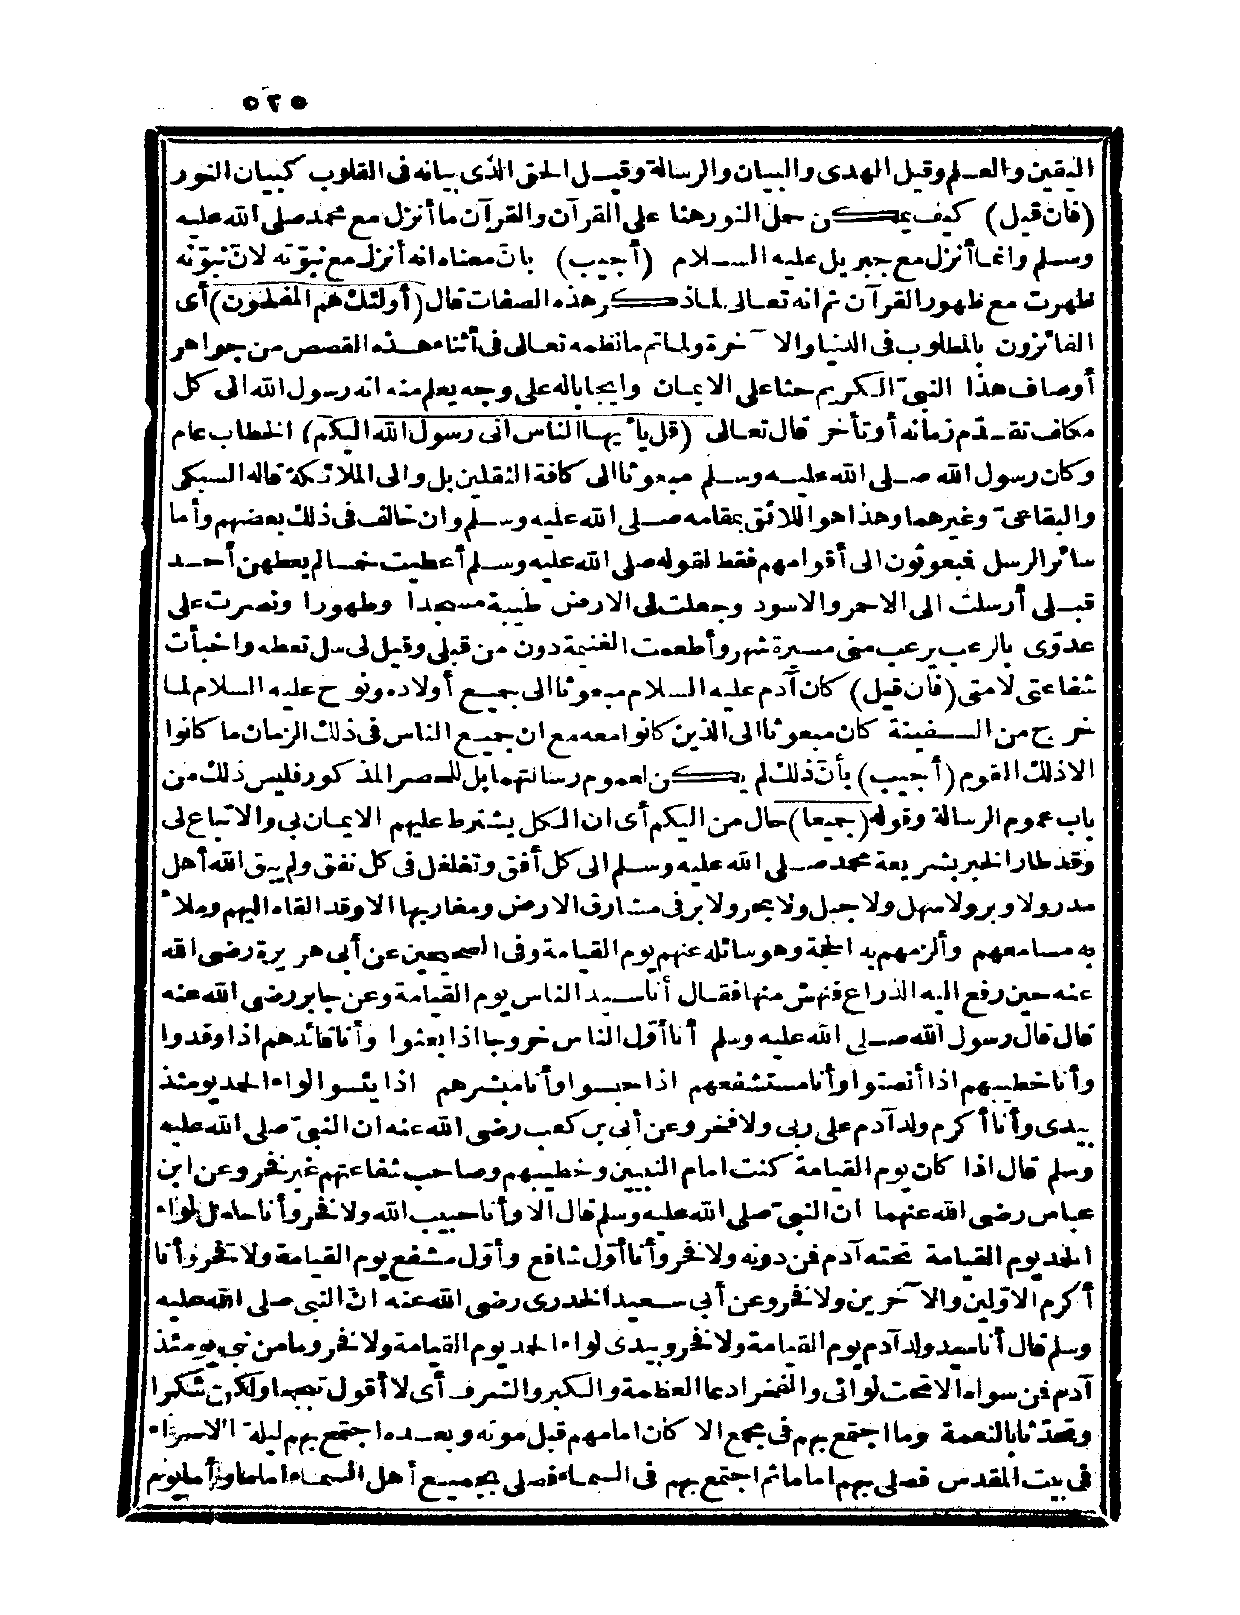 ٥٢٥
اليقين والعلم وقيل الهدى والبيان والرسالة وقيل الحق الذى بيانه فى القلوب كبيان النور
(فان قيل) كيف يمكن حمل النور هنا على القرآن والقرآن ما أنزل مع محمد صلى الله عليه
وسلم وانما أنزل مع جبريل عليه السلام (أجيب) بانّ معناه انه أنزل مع نبوّته لانّ نبوّته
ظهرت مع ظهور القرآن ثم انه تعالى لما ذكر هذه الصفات قال (أولئك هم المفلحون) أى
الفائزون بالمطلوب فى الدنيا والآخرة ولما تم ما نظمه تعالى فى أثناء هذه القصص من جواهر
أوصاف هذا النبىّ الكريم حثا على الايمان وايجابا له على وجه يعلم منه انه رسول الله الى كل
مكلف تقدّم زمانه أو تأخر قال تعالى (قل يأيها الناس انى رسول الله اليكم) الخطاب عام
وكان رسول الله صلى الله عليه وسلم مبعوثا الى كافة الثقلين بل والى الملائكة قاله السبكى
والبقاعىّ وغيرهما وهذا هو اللائق بمقامه صلى الله عليه وسلم وان خالف فى ذلك بعضهم وأما
سائر الرسل فبعوثون الى أقوامهم فقط لقوله صلى الله عليه وسلم أعطيت خمسا لم يعطهن أحد
قبلى أرسلت الى الاحمر والاسود وجعلت لى الارض طيبة مسجدا وطهورا ونصرت على
عدوّى بالرعب يرعب منى مسيرة شهر وأطعمت الغنيمة دون من قبلى وقيل لى سل تعطه واختبأت
شفاعتى لامتى (فان قيل) كان آدم عليه السلام مبعوثا الى جميع أولاده ونوح عليه السلام لما
خرج من السفينة كان مبعوثا الى الذين كانوا معه مع ان جميع الناس فى ذلك الزمان ما كانوا
الا ذلك القوم (أجيب) بأنّ ذلك لم يكن لعموم رسالتهما بل للحصر المذكور فليس ذلك من
باب عموم الرسالة وقوله (جميعا) حال من اليكم أى ان الكل يشترط عليهم الايمان بى والاتباع لى
وقد طار الخبر بشريعة محمد صلى الله عليه وسلم الى كل أفق وتغلغل فى كل نفق ولم يبق الله أهل
مدر ولا وبر ولا سهل ولا جبل ولا بحر ولا بر فى مشارق الارض ومغاربها الا وقد القاه اليهم وملأ
به مسامعهم وألزمهم به الحجة وهو سائله عنهم يوم القيامة وفى الصحيحين عن أبى هريرة رضى الله
عنه حين رفع اليه الذراع فنهش منها فقال أنا سيد الناس يوم القيامة وعن جابر رضى الله عنه
قال قال رسول الله صلى الله عليه وسلم أنا أوّل الناس خروجا اذا بعثوا وأنا قائدهم اذا وفدوا
وأنا خطيبهم اذا أنصتوا وأنا مستشفعهم اذا حبسوا وأنا مبشرهم اذا يئسوا لواء الحمد يومئذ
بيدى وأنا أكرم ولد آدم على ربى ولا فخر وعن أبى بن كعب رضى الله عنه ان النبىّ صلى الله عليه
وسلم قال اذا كان يوم القيامة كنت امام النبيين وخطيبهم وصاحب شفاعتهم غير فخر وعن ابن
عباس رضى الله عنهما ان النبىّ صلى الله عليه وسلم قال الا وأنا حبيب الله ولا فخر وأنا حامل لواء
الحمد يوم القيامة تحته آدم فمن دونه ولا فخر وأنا أوّل شافع وأوّل مشفع يوم القيامة ولا فخر وأنا
أكرم الاوّلين والآخرين ولا فخر وعن أبى سعيد الخدرى رضى الله عنه انّ النبى صلى الله عليه
وسلم قال أنا سيد ولد آدم يوم القيامة ولا فخر وبيدى لواء الحمد يوم القيامة ولا فخر وما من نبى يومئذ
آدم فمن سواه الا تحت لوائى والفخر ادعا العظمة والكبر والشرف أى لا أقول تبجحا ولكن شكرا
وتحدّثا بالنعمة وما اجتمع بهم فى مجمع الا كان امامهم قبل موته وبعده اجتمع بهم ليلة الاسراء
فى بيت المقدس فصلى بهم اماما ثم اجتمع بهم فى السماء فصلى بجميع أهل السماء اماما وأما يوم